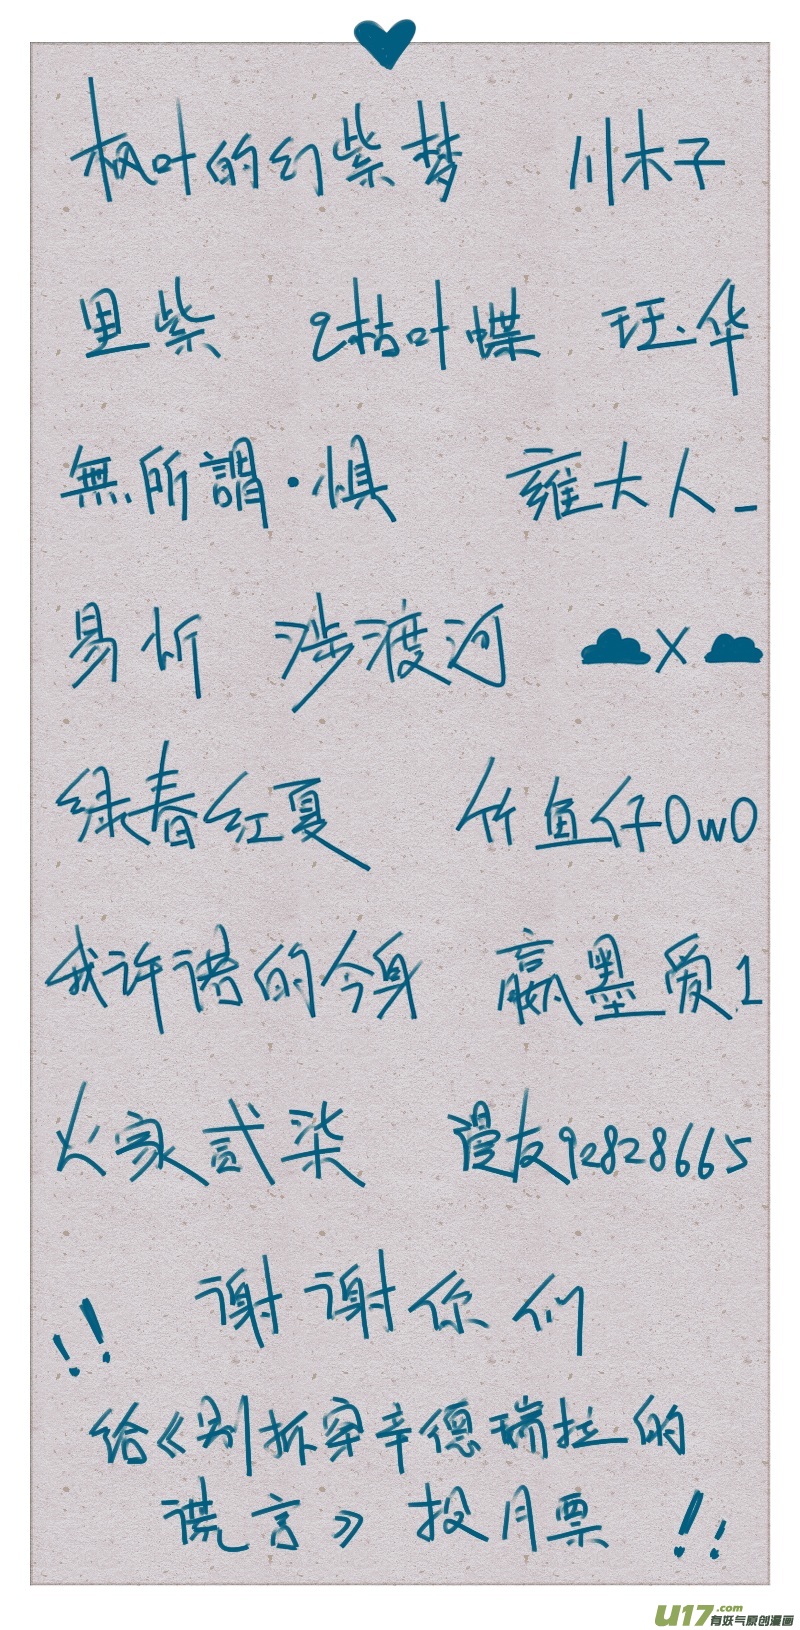 枫叶的幻紫梦 川木子
里紫 2枯叶蝶 珏华
無所謂·惧 雍大人_
易忻 涉渡河 X
绿春红夏 竹鱼仔0w0
我许诺的今身 嬴墨爱1
火家貳柒 漫友92828665
谢谢你们
!! 给《别拆穿辛德瑞拉的
谎言》投月票 !!
U17.com
有妖气原创漫画